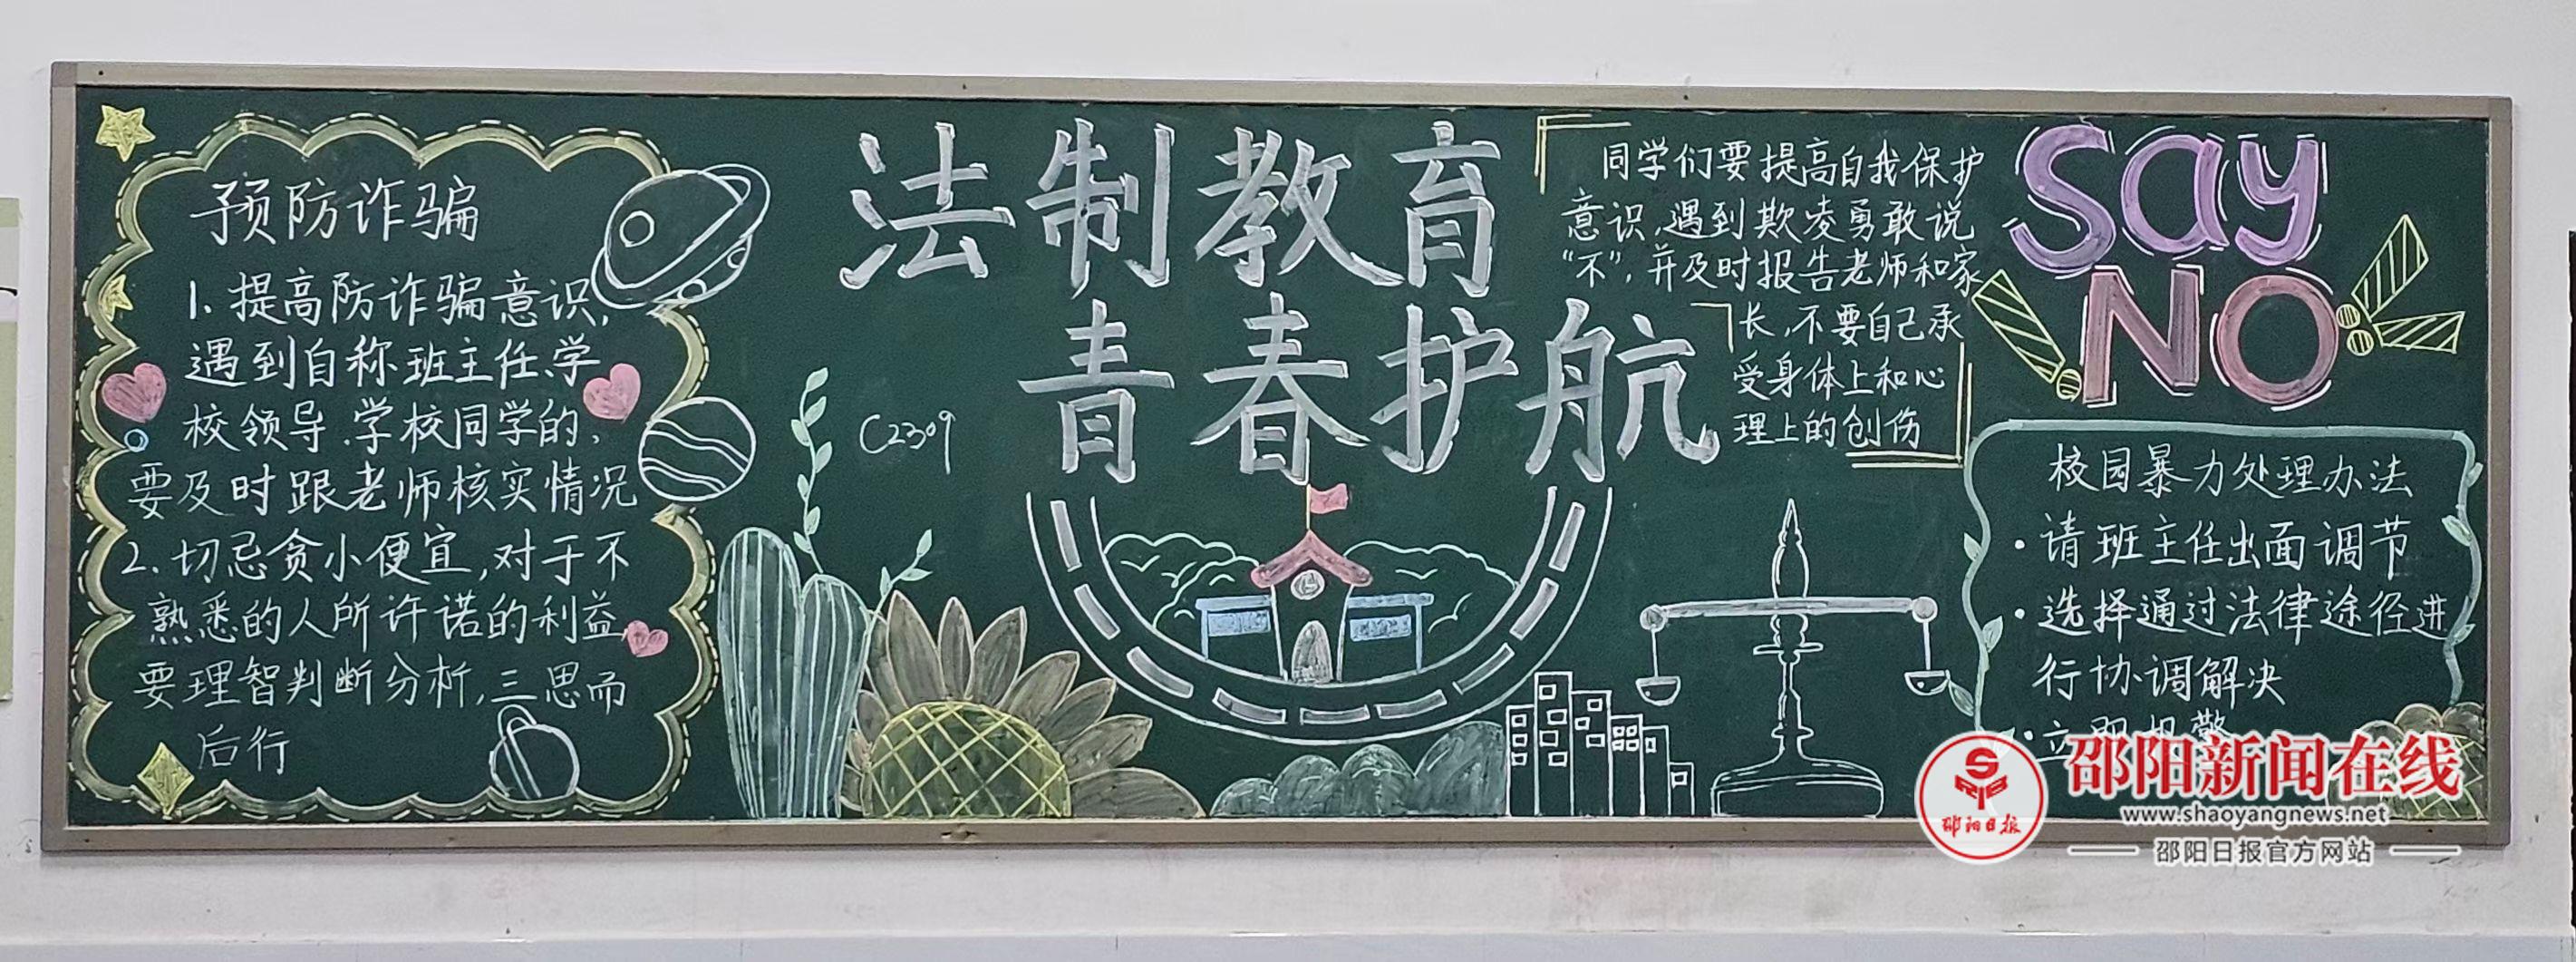 预防诈骗
1.提高防诈骗意识,
遇到自称班主任、学
校领导、学校同学的,
要及时跟老师核实情况
2.切忌贪小便宜,对于不
熟悉的人所许诺的利益
要理智判断分析,三思而
后行
法制教育
青春护航
C2309
同学们要提高自我保护
意识,遇到欺凌勇敢说
“不”,并及时报告老师和家
长,不要自己承
受身体上和心
理上的创伤
Say
NO
校园暴力处理办法
·请班主任出面调节
·选择通过法律途径进
行协调解决
·立即报警
SRB
邵阳日报
邵阳新闻在线
www.shaoyangnews.net
邵阳日报官方网站